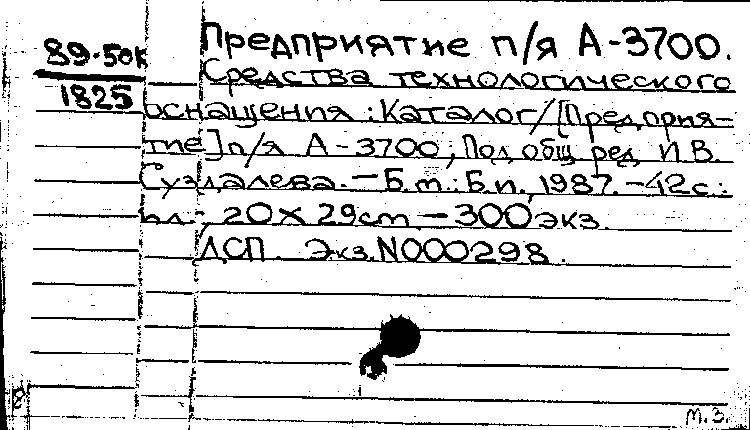 89-50к
1825
Предприятие п/я А-3700.
Средства технологического
оснащения : Каталог/[Предприя-
тие] п/я А-3700; Под общ. ред. И.В.
Суздалева. – Б.м.: Б.и., 1987. – 42с.:
ил.; 20 х 29cm – 300 экз.
ДСП. Экз. N000298.
8
м.з.